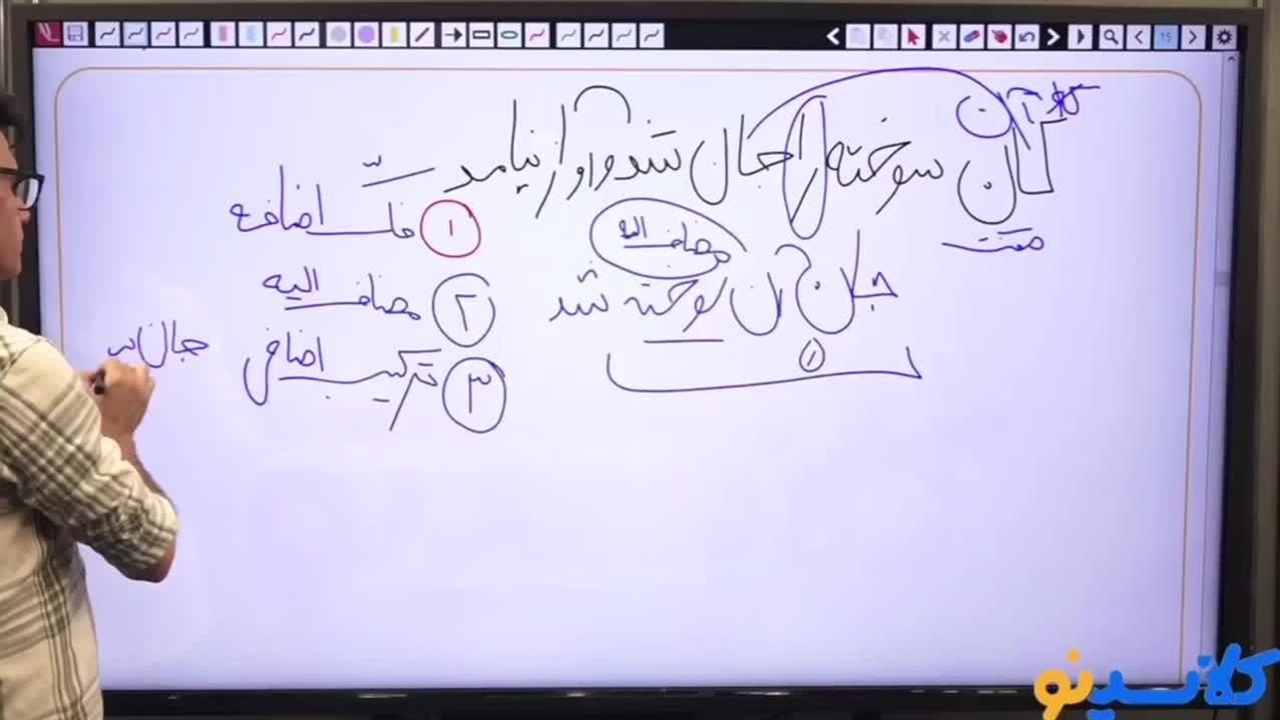 کان سوخته را جان شد و آواز نیامد
صفت
مضاف الیه
جان آن سوخته شد
۱
۱ فک اضافه
۲ مضاف الیه
۳ ترکیب اضافی جان
15
کلاسینو